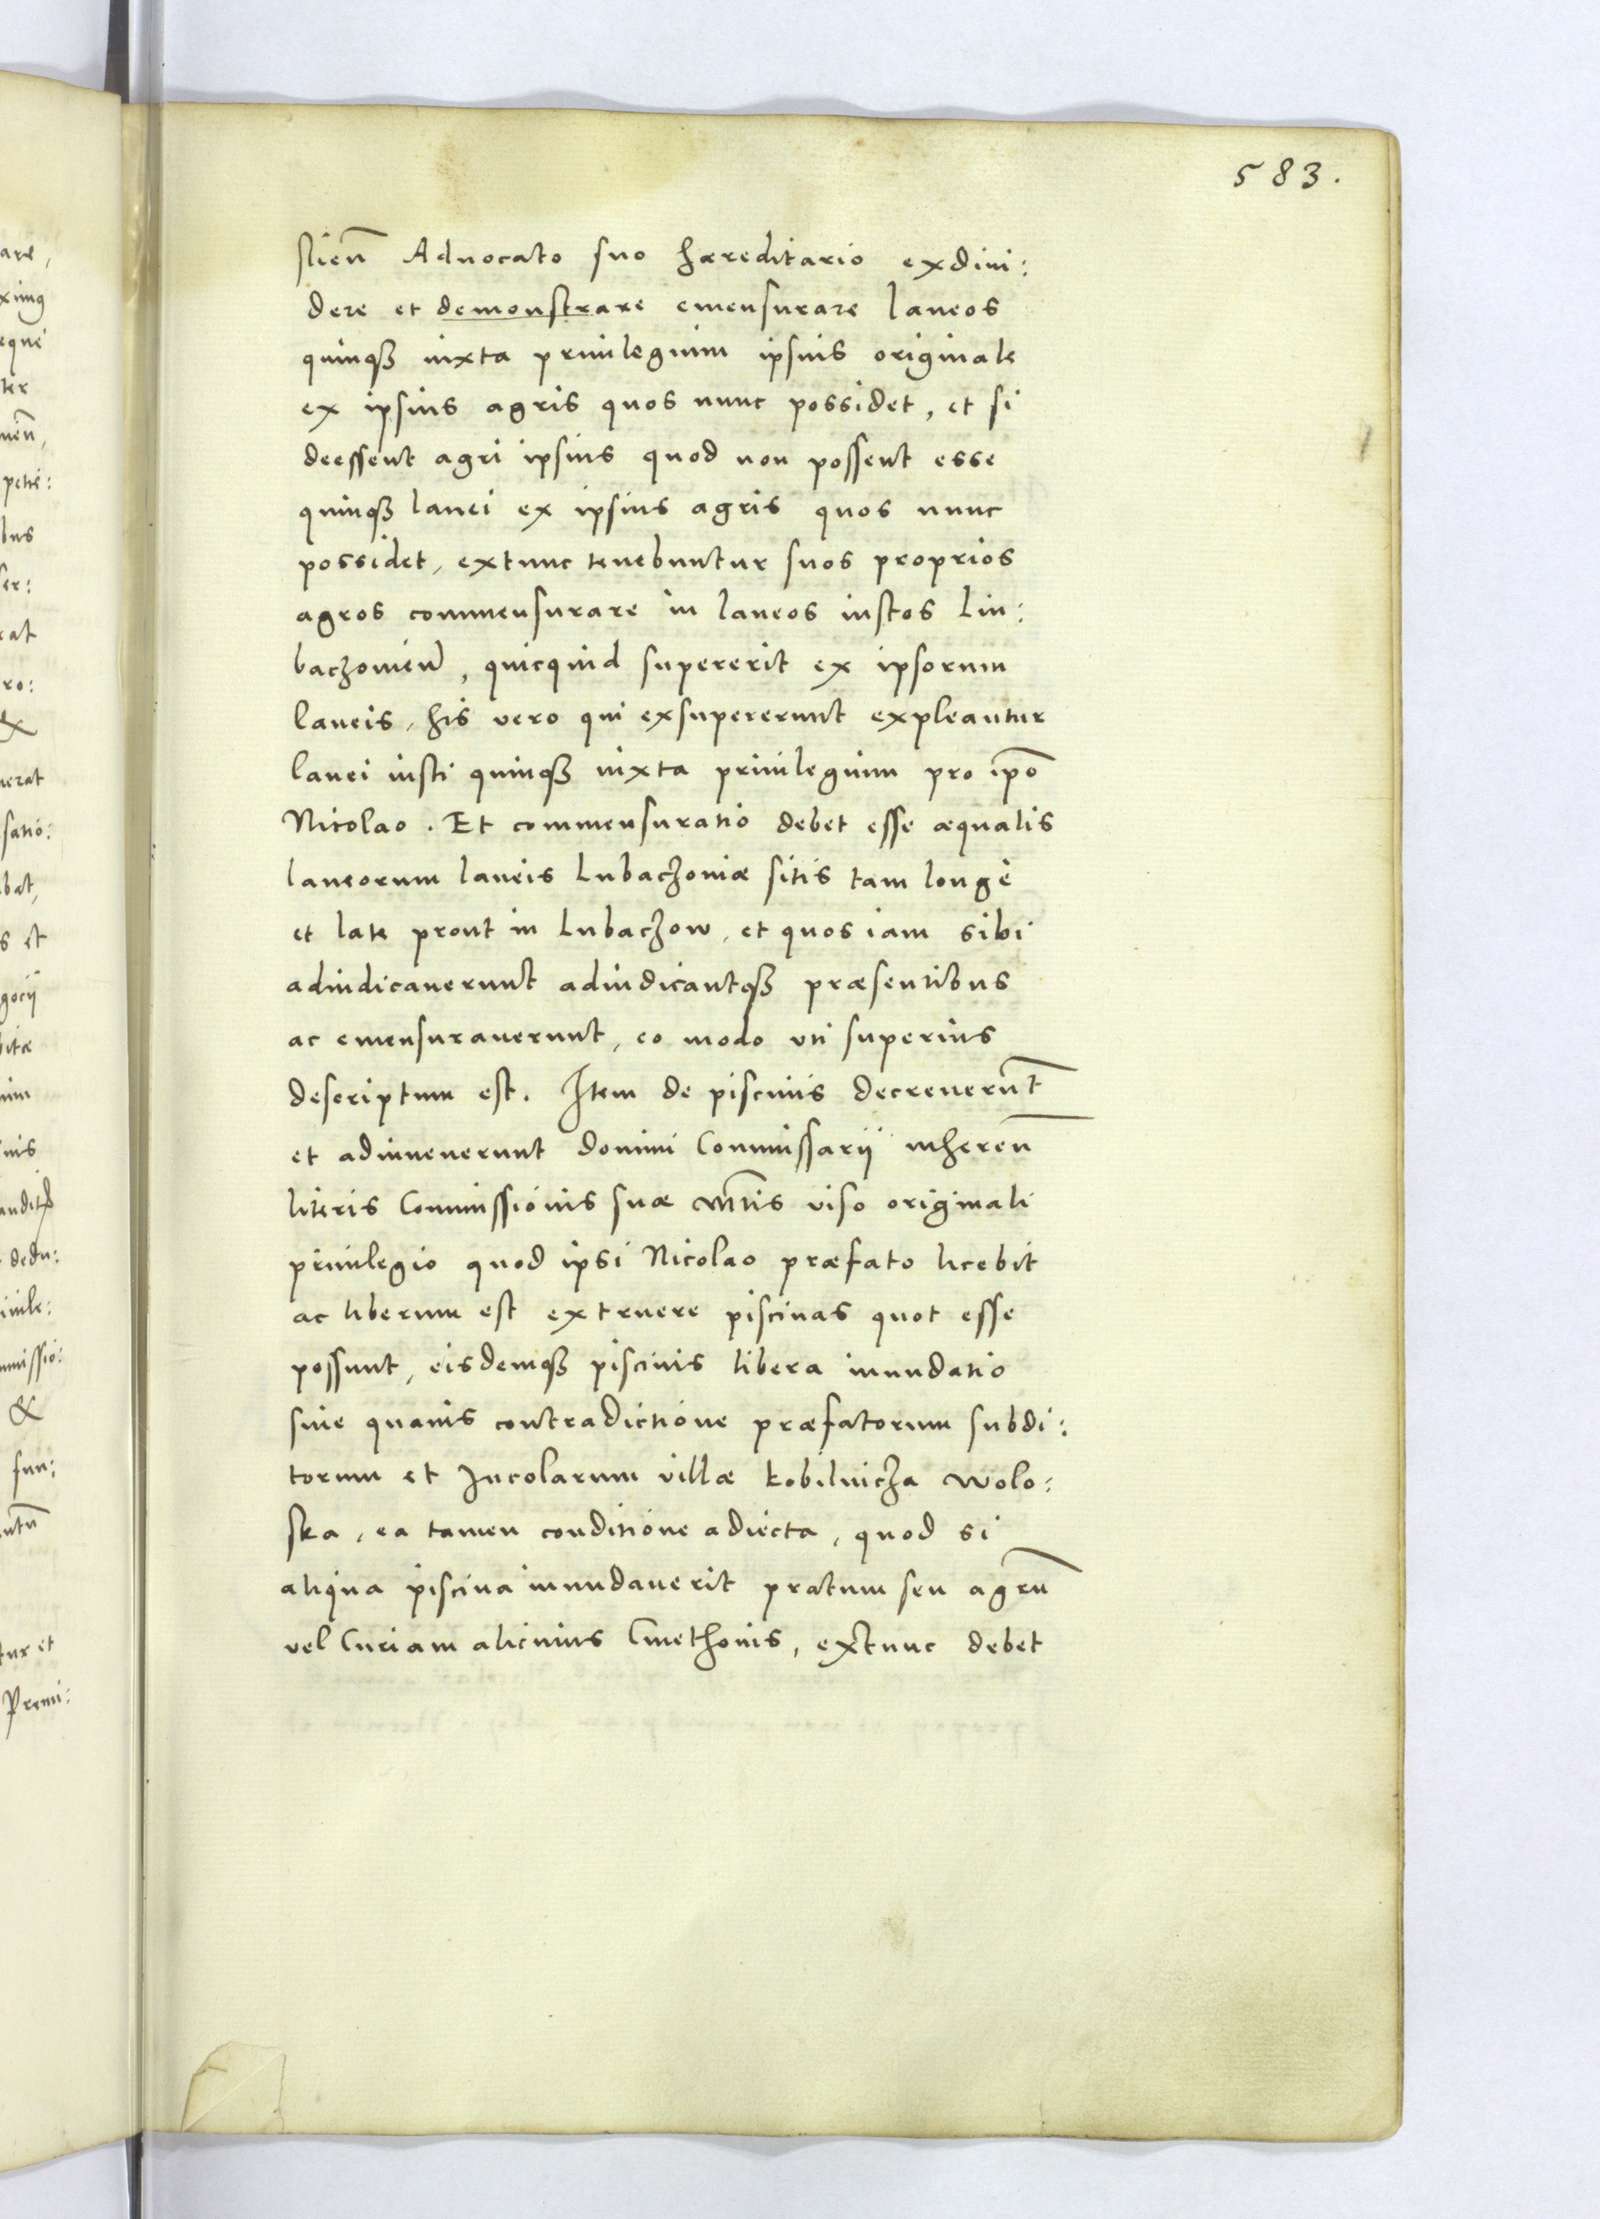 583.
slień Aduocato suo hæreditario exdiui:
dere et demonstrare emensurare laneos
quinqȝ iuxta priuilegium ipsius originale
ex ipsius agris quos nunc possidet, et si
deessent agri ipsius quod non possent esse
quinqȝ lanei ex ipsius agris quos nunc
possidet, extunc tenebuntur suos proprios
agros commensurare in laneos iustos Lin:
baczouień, quicquid supererit ex ipsorum
laneis, his vero qui exsupererunt expleantur
lanei iusti quinqȝ iuxta priuilegium pro ip̄o
Nicolao. Et commensuratio debet esse æqualis
laneorum laneis Lubaczouiæ sitis tam longè
et late prout in Lubaczow, et quos iam sibi
adiudicauerunt adiudicantqȝ præsentibus
ac emensurauerunt, eo modo uti superius
descriptum est. Item de piscinis decreuerūt
et adinuenerunt domini Commissarij inhereñ
literis Commissionis suæ Mt̄is viso originali
priuilegio quod ipsi Nicolao præfato licebit
ac liberum est extruere piscinas quot esse
possunt, eisdemqȝ piscinis libera inundatio
siue quauis contradictione præfatorum subdi:
torum et Incolarum villæ Kobilnicza Wolo:
ska, ea tamen conditione adiecta, quod si
aliqua piscina inundauerit pratum seu agrū
vel Curiam alicuius Cmethonis, extunc debet
are,
ximg
eque
ter
meñ,
petie:
bus
ser:
rat
ro:
&
uerat
satio:
bat,
s et
gocij
bitæ
nim
nis
dedu:
iuile:
mmissio:
&
sun:
untū
tur et
Premi: